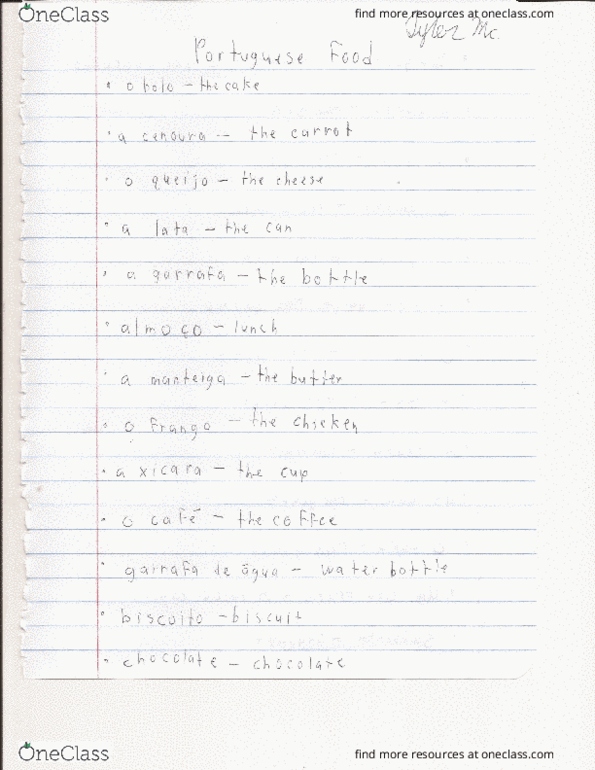 OneClass
find more resources at oneclass.com
Tyler Mc.
Portuguese Food
• o bolo – the cake
• a cenoura – the carrot
• o queijo – the cheese
• a lata – the can
• a garrafa – the bottle
• almoço – lunch
• a manteiga – the butter
• o frango – the chicken
• a xicara – the cup
• o café – the coffee
• garrafa de água – water bottle
• biscoito – biscuit
• chocolate – chocolate
OneClass
find more resources at oneclass.com